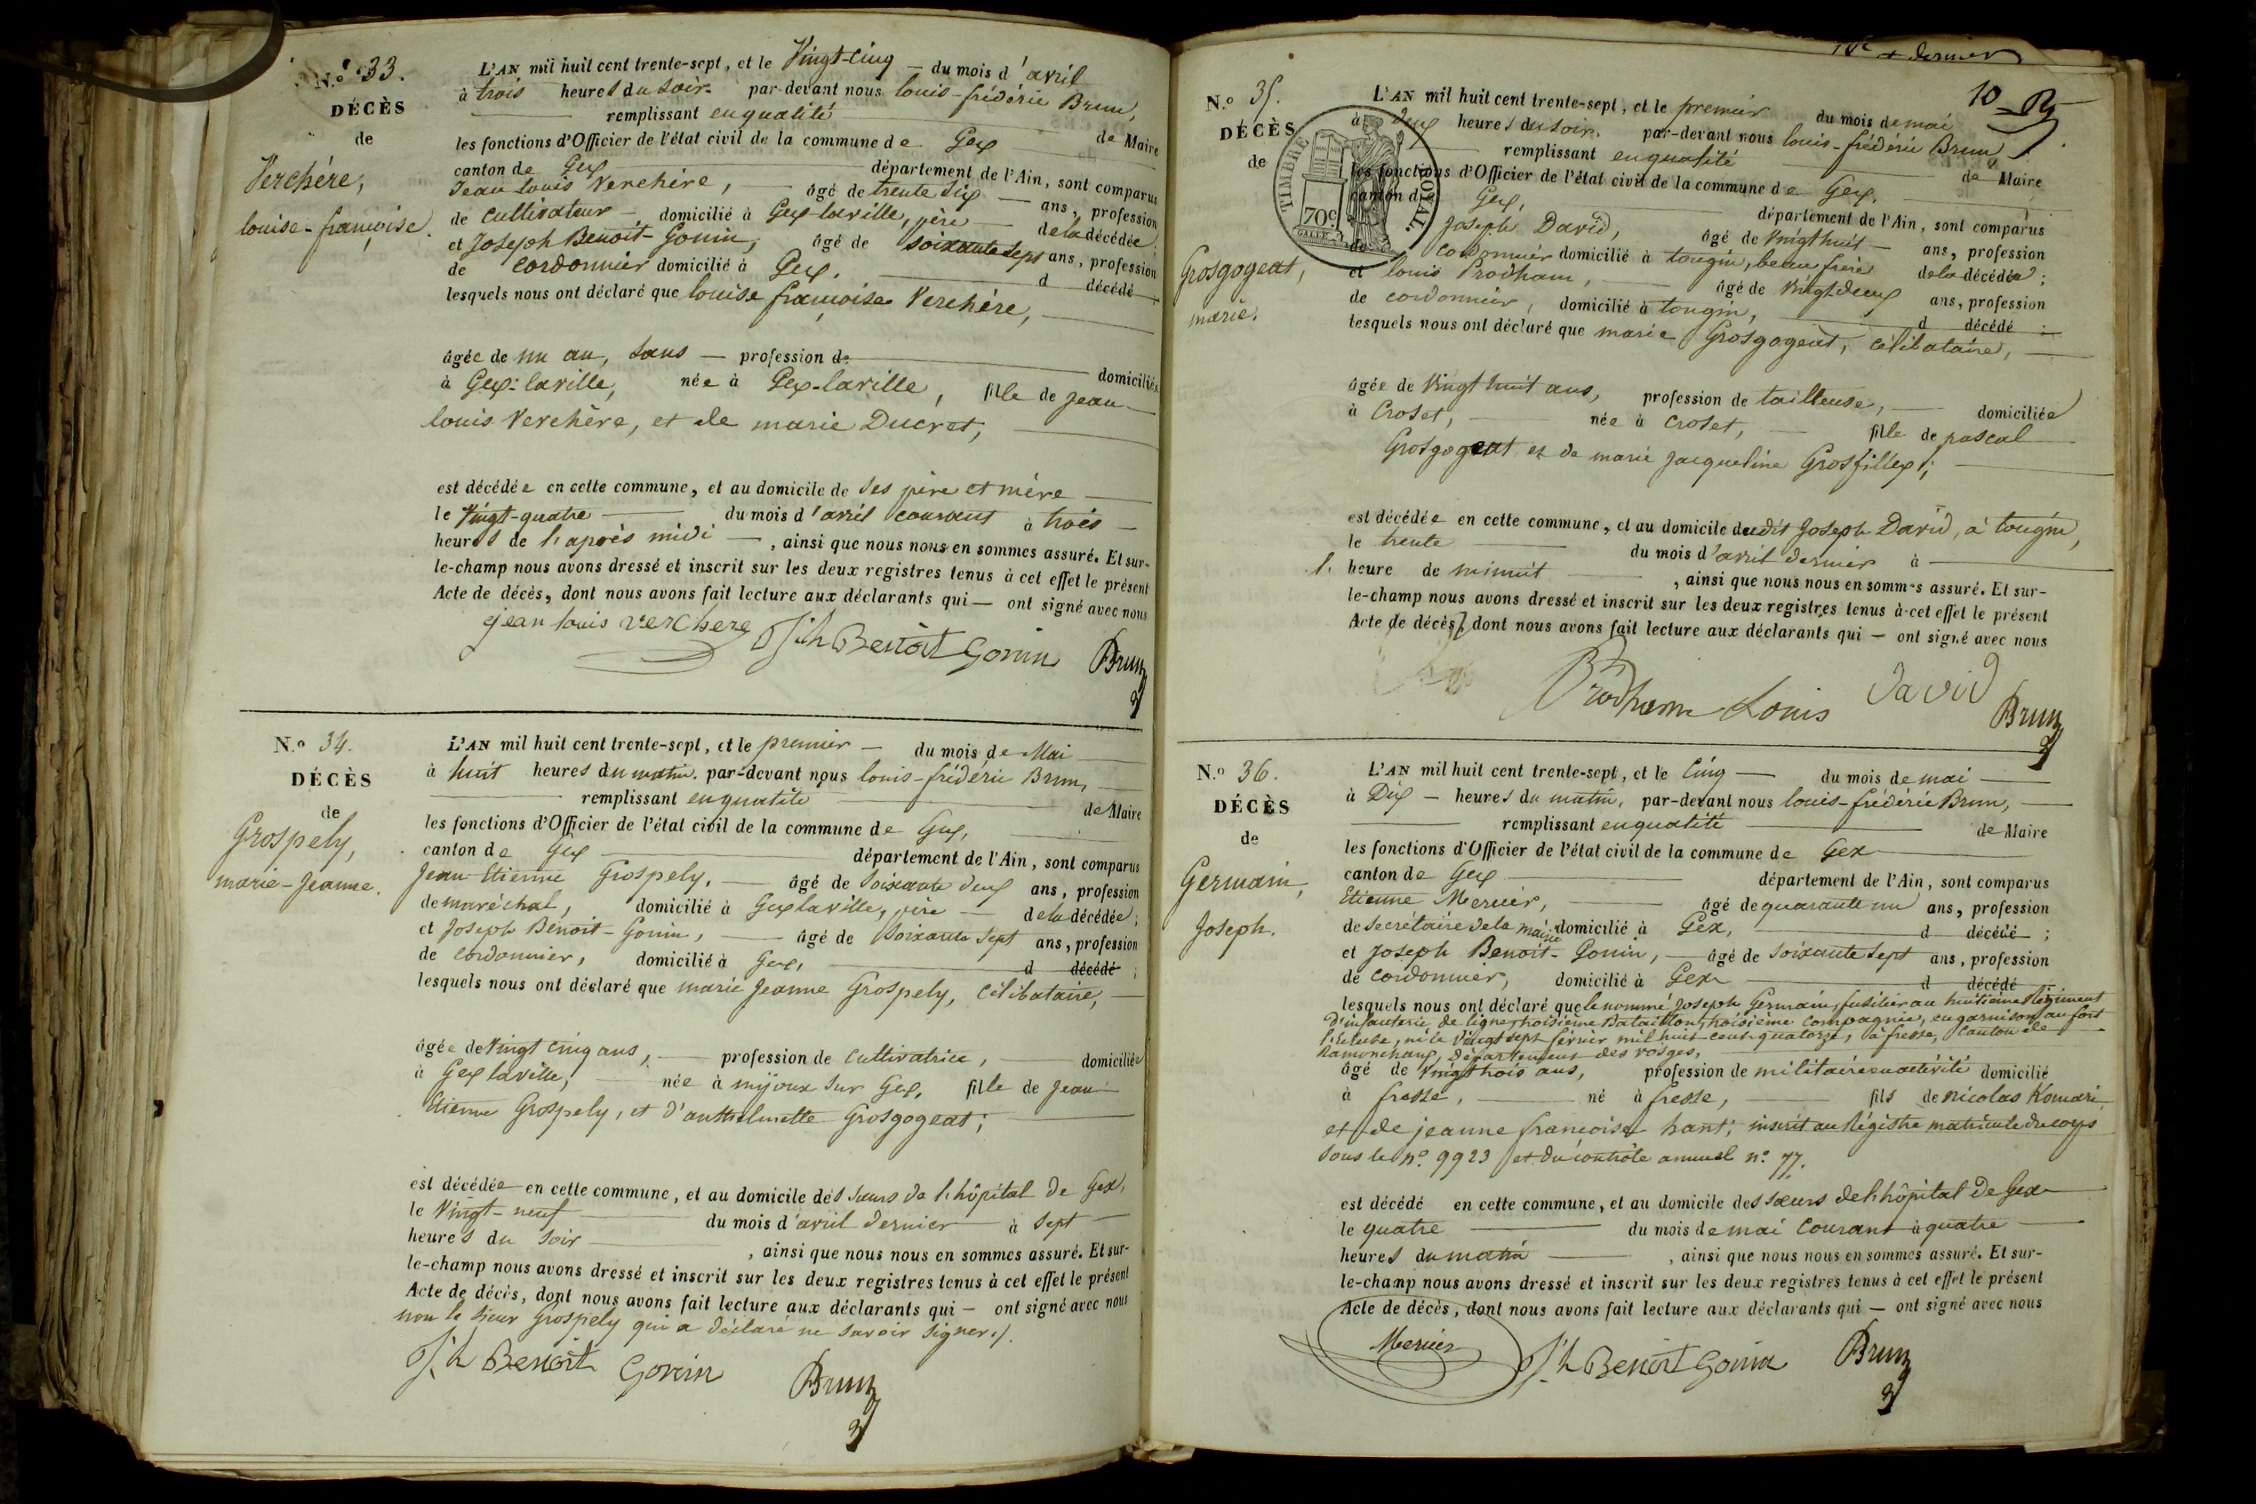 N.º 33.
DÉCÈS
de
Verchère,
louise-françoise.
L'AN mil huit cent trente-sept, et le Vingt-cinq — du mois d'avril
à trois heures du soir. par-devant nous louis-frédéric Brun,
remplissant en qualité de Maire
les fonctions d'Officier de l'état civil de la commune de Gex
canton de Gex département de l'Ain, sont comparus
Jean Louis Verchère, âgé de trente six ans, profession
de cultivateur — domicilié à Gex-laville, père de la décédée;
et Joseph Benoit-Gonin, âgé de soixante sept ans, profession
de cordonnier domicilié à Gex. d décédé
lesquels nous ont déclaré que louise françoise Verchère,
âgée de un an, sans — profession de domiciliée
à Gex-laville, née à Gex-laville, fille de jean
louis Verchère, et de marie Ducret,
est décédée en cette commune, et au domicile de ses père et mère
le Vingt-quatre du mois d'avril courant à trois
heures de l'après midi —, ainsi que nous nous en sommes assuré. Et sur-
le-champ nous avons dressé et inscrit sur les deux registres tenus à cet effet le présent
Acte de décès, dont nous avons fait lecture aux déclarants qui — ont signé avec nous
jean louis verchere Jh Benoit Gonin Brun
N.º 34.
DÉCÈS
de
Grospely,
marie-Jeanne.
L'AN mil huit cent trente-sept, et le premier — du mois de Mai
à huit heures du matin. par-devant nous louis-frédéric Brun,
remplissant en qualité de Maire
les fonctions d'Officier de l'état civil de la commune de Gex,
canton de Gex département de l'Ain, sont comparus
Jean-Etienne Grospely, âgé de soixante deux ans, profession
de maréchal, domicilié à Gex laville, père — de la décédée;
et Joseph Benoit-Gonin, âgé de soixante sept ans, profession
de cordonnier, domicilié à Gex, d décédé;
lesquels nous ont déclaré que marie Jeanne Grospely, célibataire,
âgée de Vingt cinq ans, profession de cultivatrice, domiciliée
à Gex laville, née à mijoux sur Gex, fille de Jean
Etienne Grospely, et d'anthelmette Grosgogeat;
est décédée en cette commune, et au domicile des sœurs de l'hôpital de Gex,
le Vingt-neuf du mois d'avril dernier à sept
heures du soir, ainsi que nous nous en sommes assuré. Et sur-
le-champ nous avons dressé et inscrit sur les deux registres tenus à cet effet le présent
Acte de décès, dont nous avons fait lecture aux déclarants qui — ont signé avec nous
non le sieur Grospely qui a déclaré ne savoir signer./.
Jh Benoit Gonin Brun
et dernier
10
N.º 35.
DÉCÈS
de
Grosgogeat,
marie.
TIMBRE ROYAL
70c.
L'AN mil huit cent trente-sept, et le premier du mois de mai
à deux heures du soir. par-devant nous louis-frédéric Brun,
remplissant en qualité de Maire
les fonctions d'Officier de l'état civil de la commune de Gex.
canton de Gex, département de l'Ain, sont comparus
Joseph David, âgé de Vingt huit — ans, profession
de cordonnier domicilié à tougin, beau frère de la décédée;
et louis Prodham, âgé de Vingt deux ans, profession
de cordonnier, domicilié à tougin, d décédé;
lesquels nous ont déclaré que marie Grosgogeat, célibataire,
âgée de Vingt huit ans, profession de tailleuse, domiciliée
à Croset, née à Croset, fille de pascal
Grosgogeat et de marie jacqueline Grosfillex;
est décédée en cette commune, et au domicile dudit Joseph David, à tougin,
le trente du mois d'avril dernier à
l' heure de minuit, ainsi que nous nous en sommes assuré. Et sur-
le-champ nous avons dressé et inscrit sur les deux registres tenus à cet effet le présent
Acte de décès, dont nous avons fait lecture aux déclarants qui — ont signé avec nous
Prodham Louis David Brun
N.º 36.
DÉCÈS
de
Germain,
Joseph.
L'AN mil huit cent trente-sept, et le cinq — du mois de mai
à Dix — heures du matin, par-devant nous louis-frédéric Brun,
remplissant en qualité de Maire
les fonctions d'Officier de l'état civil de la commune de Gex
canton de Gex département de l'Ain, sont comparus
Etienne Mercier, âgé de quarante un ans, profession
de secrétaire de la mairie domicilié à Gex, d décédé;
et Joseph Benoit-Gonin, âgé de soixante sept ans, profession
de cordonnier, domicilié à Gex d décédé
lesquels nous ont déclaré que le nommé Joseph Germain, fusilier au huitième Régiment
d'infanterie de ligne, troisième Bataillon, troisième compagnie, en garnison au fort
l'écluse, né le Vingt sept février mil huit cent quatorze, à fresse, canton de
Ramonchamp, département des vosges,
âgé de Vingt trois ans, profession de militaire en activité domicilié
à fresse, né à fresse, fils de nicolas Romari
et de jeanne françoise hant; inscrit au Régistre matricule du corps
sous le nº. 9923 et du contrôle annuel nº. 77.
est décédé en cette commune, et au domicile des sœurs de l'hôpital de Gex
le quatre du mois de mai courant à quatre
heures du matin, ainsi que nous nous en sommes assuré. Et sur-
le-champ nous avons dressé et inscrit sur les deux registres tenus à cet effet le présent
Acte de décès, dont nous avons fait lecture aux déclarants qui — ont signé avec nous
Mercier Jh Benoit Gonin Brun